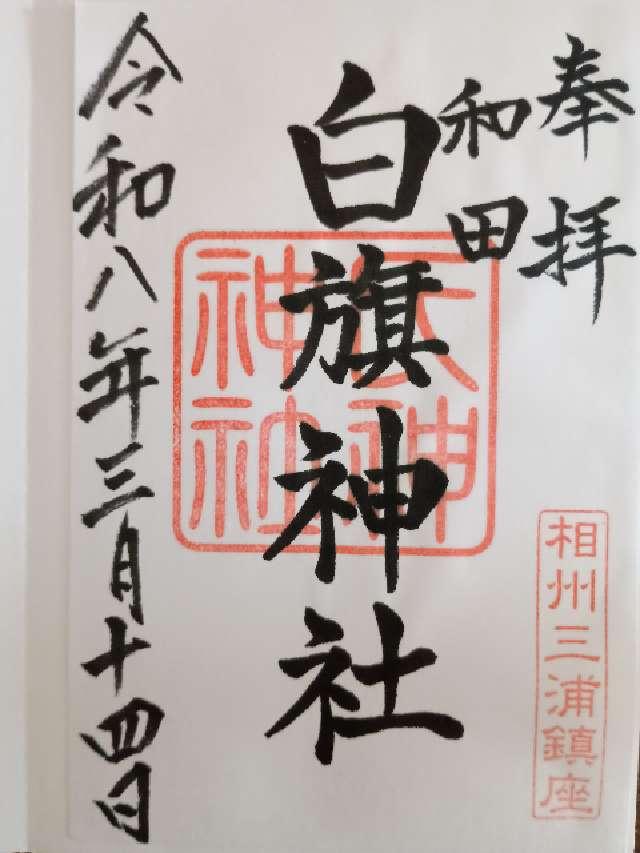 奉拝
和田
白旗神社
天神
神社
相州三浦鎮座
令和八年三月十四日